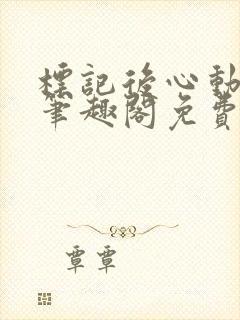 標記後心動
筆趣閣免費
覃覃